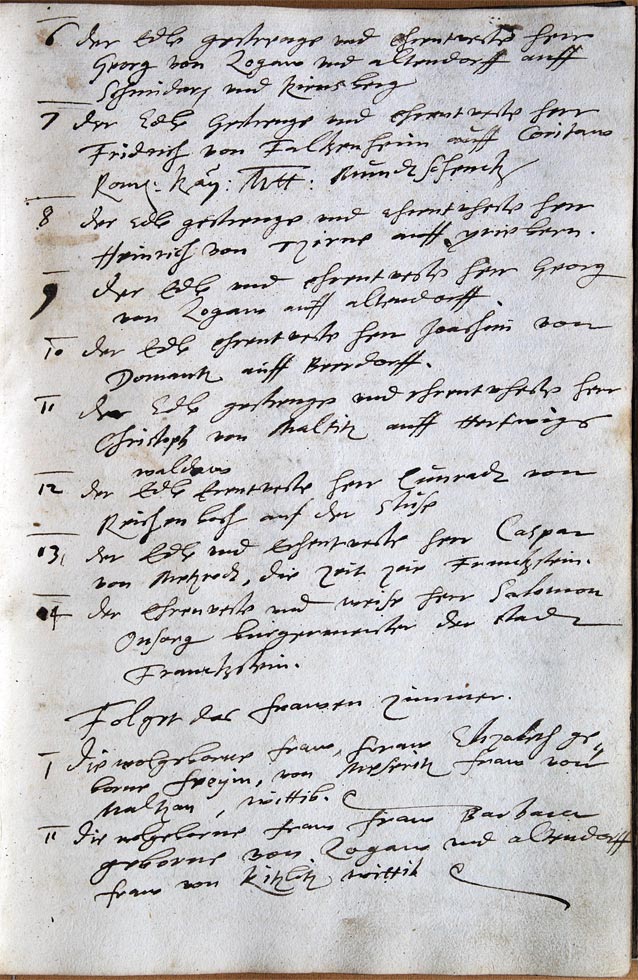 6 der Edle gestrenge und Ehrentveste herr
Georg von Logaw und altendorff auff
und
7 der Edle Gestrenge und Ehrentveste herr
Fridrich von Falkenheim auff
Röm: Kay: Mtt: Mundt Schenck
8 der Edle gestrenge und ehrentveste herr
Heinrich von auff
9 der Edle und ehrentveste herr Georg
von Logaw auff altendorff.
10 der Edle ehrentveste herr Joachim von
auff Beerdorff.
11 der Edle gestrenge und ehrentveste herr
Christoph von Maltitz auff Hertwigs
waldaw
12 der Edle Erentveste herr Cunradt von
Reichenbach auf der Stuse
13 der Edle und Ehrentveste herr Caspar
von die zeit zue Franckstein.
14 der Ehrenveste und weise herr Salomon
Onsorg bürgermeister der stadt
Franckstein.
Folget das frawen zimmer.
I die wolgeborne fraw, fraw Elizabeth ge-
borne freyin, von fraw von
Maltzan, wittib.
II die wolgeborne fraw fraw Barbara
geborne von Logaw und altendorff
fraw von Kitzlitz wittib